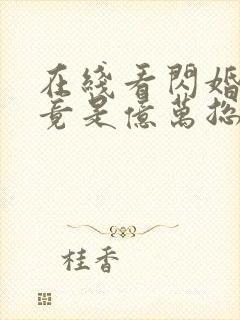 在綫看閃婚
竟是億萬總
桂香